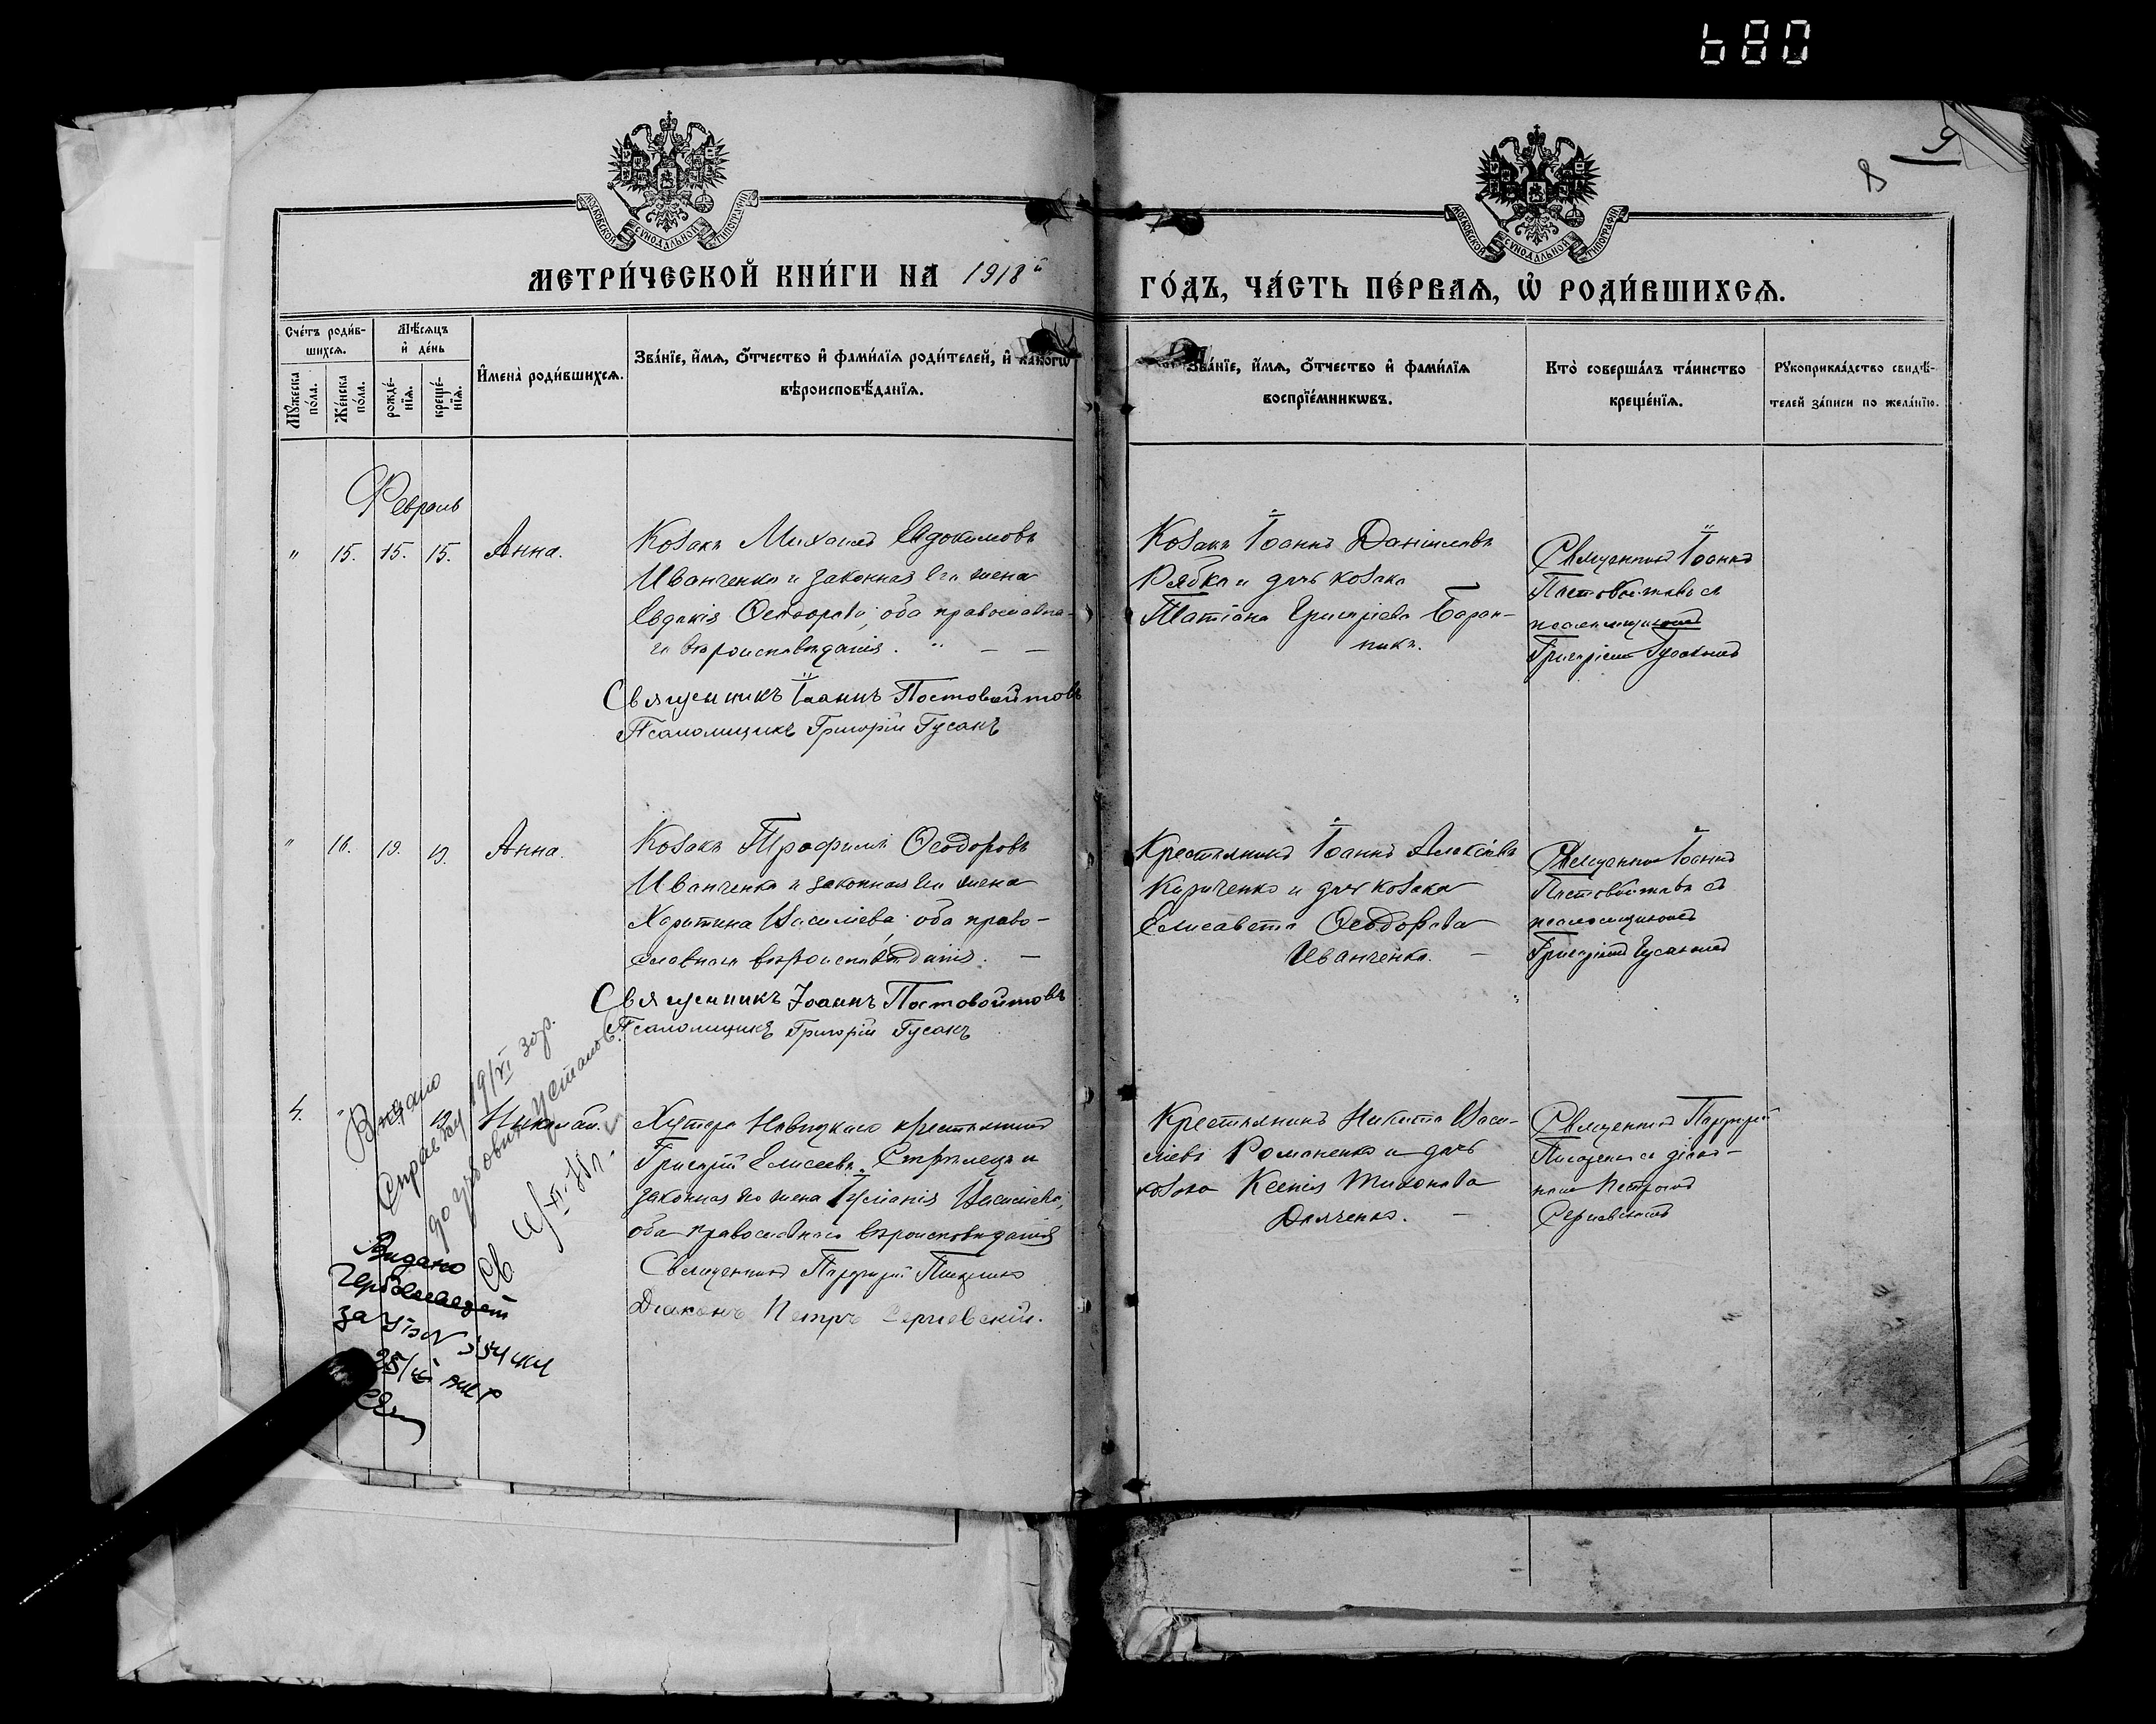 680
9
8
МОСКОВСКОЙ СѴНОДАЛЬНОЙ ТИПОГРАФІИ
МОСКОВСКОЙ СѴНОДАЛЬНОЙ ТИПОГРАФІИ
МЕТРИ́ЧЕСКОЙ КНИ́ГИ НА 1918й
ГО́ДЪ, ЧА́СТЬ ПЕ́РВАѦ, Ѡ҆ РОДИ́ВШИХСѦ.
Сче́тъ роди́в-
шихсѧ.
Мꙋ́жеска по́ла.
Же́нска по́ла.
Мѣ́сѧцъ
и҆ де́нь
рожде́-
нїѧ.
креще́-
нїѧ.
И҆мена̀ роди́вшихсѧ.
Зва́нїе, и҆́мѧ, ѻ҆́тчество и҆ фами́лїѧ роди́телей, и҆ како́гѡ
вѣроисповѣ́данїѧ.
Зва́нїе, и҆́мѧ, ѻ҆́тчество и҆ фами́лїѧ
воспрїе́мникѡвъ.
Кто̀ соверша́лъ та́инство
креще́нїѧ.
Рꙋкоприкла́дство свидѣ́-
телей за́писи по жела́нїю.
Февраль
" 15. 15. 15. Анна.
Козакъ Михаилъ Евдокимовъ
Иванченко и законная его жена
Евдокія Ѳеодорова, оба православна-
го вѣроисповѣданія. " — —
Священникъ Іоаннъ Постовойтовъ
Псаломщикъ Григорій Гусакъ
Козакъ Іоаннъ Даніиловъ
Рябка и дочь козака
Татіана Григоріева Боран-
никъ.
Священникъ Іоаннъ
Постовойтовъ съ
псаломщикомъ
Григоріемъ Гусакомъ
" 16. 19. 19. Анна.
Козакъ Трофимъ Ѳеодоровъ
Иванченко и законная его жена
Харитина Василіева, оба право-
славнаго вѣроисповѣданія. —
Священникъ Іоаннъ Постовойтовъ
Псаломщикъ Григорій Гусакъ
Крестьянинъ Іоаннъ Алексіевъ
Кириченко и дочь козака
Елисавета Ѳеодорова
Иванченко. —
Священникъ Іоаннъ
Постовойтовъ съ
псаломщикомъ
Григоріемъ Гусакомъ
4. " 19. Николай.
Хутора Новицкаго крестьянинъ
Григорій Елисеевъ Стрѣлецъ и
законная его жена Іуліанія Василіева,
оба православнаго вѣроисповѣданія
Священникъ Порфирій
Діаконъ Петръ Сергіевскій.
Крестьянинъ Никита Васи-
ліевъ Романенко и дочь
козака Ксенія Тихонова
Дяченко. —
Священникъ Порфирій
съ діако-
номъ Петромъ
Сергіевскимъ
Видано
Справку 19/VI 30р.
до установ.
Видано
за